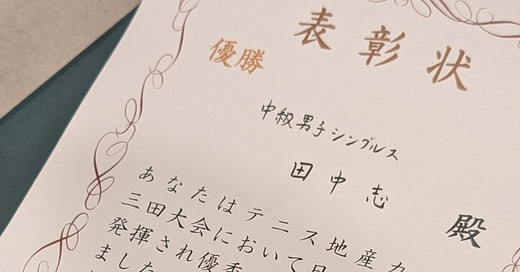 表彰状
優勝
中級男子シングルス
田中志 殿
あなたはテニス地産カ
三田大会において日
発揮され優秀
ました